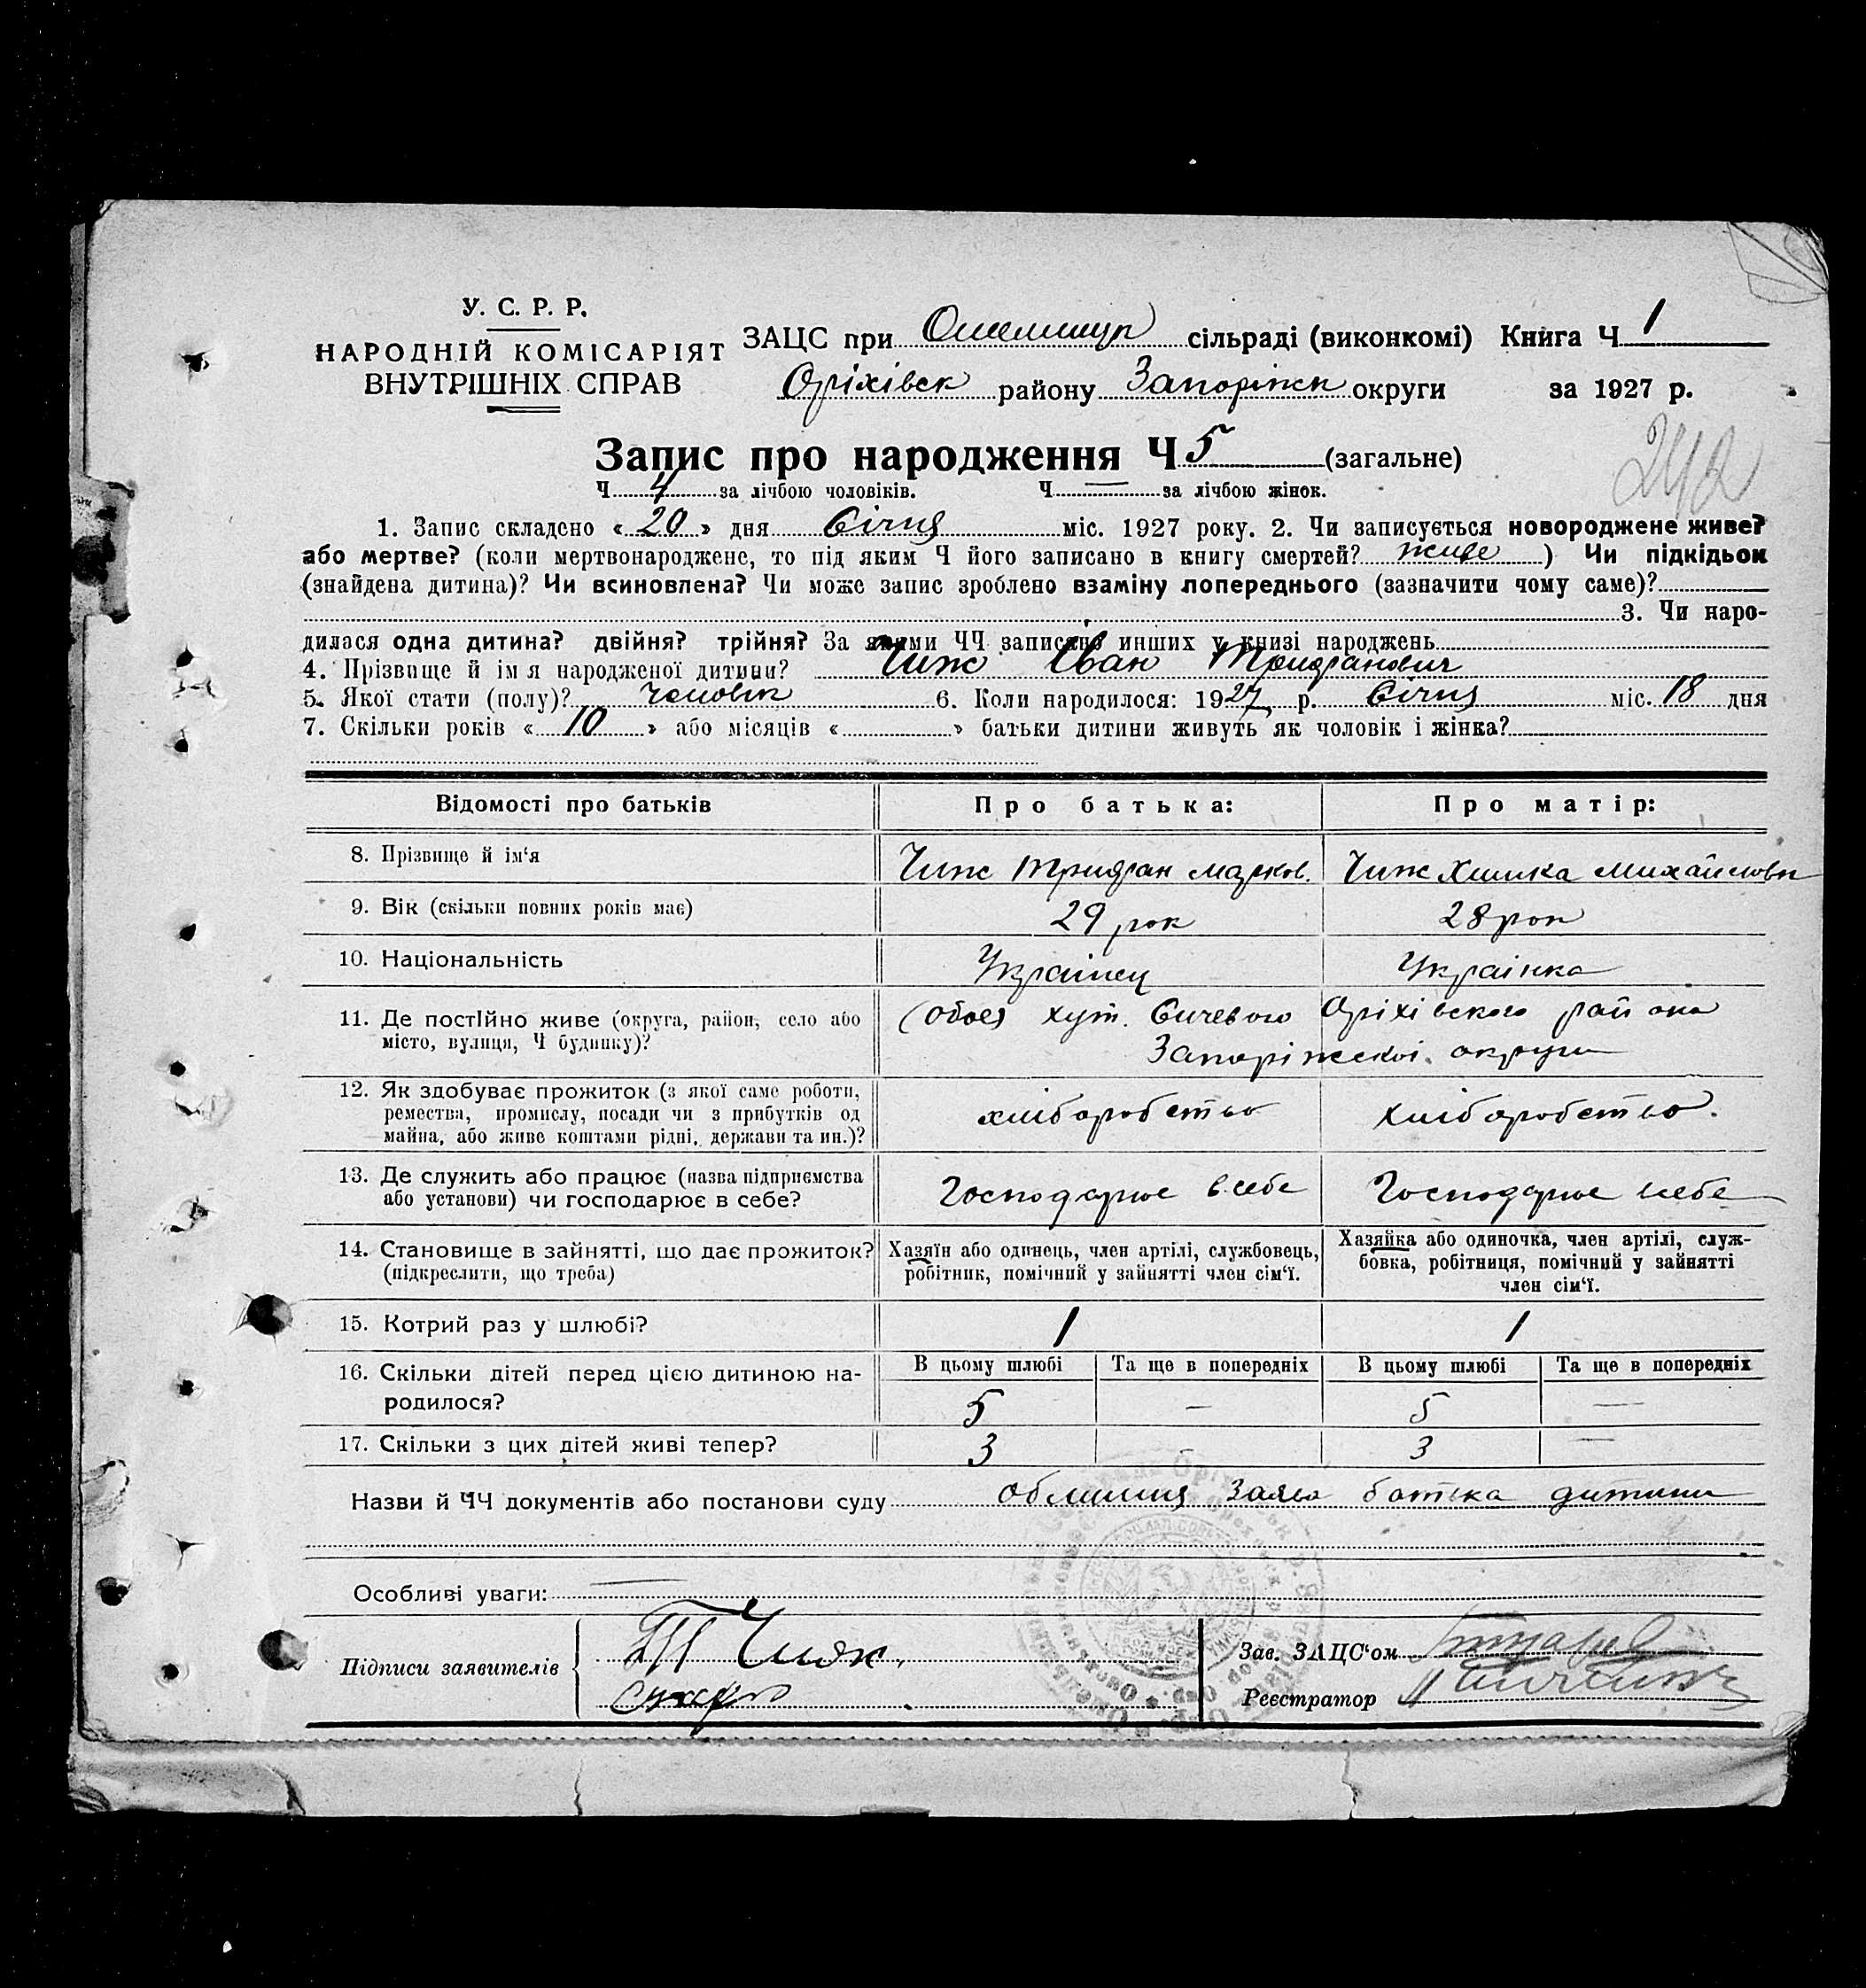 У. С. Р. Р.
НАРОДНІЙ КОМІСАРІЯТ
ВНУТРІШНІХ СПРАВ
ЗАЦС при сільраді (виконкомі) Книга Ч 1
Оріхівск району Запоріжск округи за 1927 р.
242
Запис про народження Ч 5 (загальне)
Ч 4 за лічбою чоловіків. Ч — за лічбою жінок.
1. Запис складено « 20 » дня Січня міс. 1927 року. 2. Чи записується новороджене живе?
або мертве? (коли мертвонароджене, то під яким Ч його записано в книгу смертей? живе ) Чи підкідьок
(знайдена дитина)? Чи всиновлена? Чи може запис зроблено взаміну попереднього (зазначити чому саме)?
3. Чи наро-
дилася одна дитина? двійня? трійня? За якими ЧЧ записано инших у книзі народжень
4. Прізвище й ім'я народженої дитини? Чиж Іван Трифанович
5. Якої стати (полу)? Чоловік 6. Коли народилося: 1927 р. Січня міс. 18 дня
7. Скільки років « 10 » або місяців « » батьки дитини живуть як чоловік і жінка?
Відомості про батьків Про батька: Про матір:
8. Прізвище й ім'я Чиж Трифан Марков. Чиж Михайловн
9. Вік (скільки повних років має) 29 рок 28 рок
10. Національність Українец Українка
11. Де постійно живе (округа, район, село або місто, вулиця, Ч будинку)? (обоє) хут. Сичевого Оріхівского района
Запоріжскої округи
12. Як здобуває прожиток (з якої саме роботи,
ремества, промислу, посади чи з прибутків од
майна, або живе коштами рідні, держави та ин.)? хліборобство хліборобство.
13. Де служить або працює (назва підприємства
або установи) чи господарює в себе? Господарює в себе Господарює в себе
14. Становище в зайнятті, що дає прожиток?
(підкреслити, що треба)
Хазяїн або одинець, член артілі, службовець,
робітник, помічний у зайнятті член сім'ї.
Хазяйка або одиночка, член артілі, служ-
бовка, робітниця, помічний у зайнятті
член сім'ї.
15. Котрий раз у шлюбі? 1 1
В цьому шлюбі Та ще в попередніх В цьому шлюбі Та ще в попередніх
16. Скільки дітей перед цією дитиною на-
родилося? 5 — 5 —
17. Скільки з цих дітей живі тепер? 3 - 3 —
Назви й ЧЧ документів або постанови суду батька дитини
Особливі уваги: —
Підписи заявителів Чиж
Зав. ЗАЦС'ом
Реєстратор